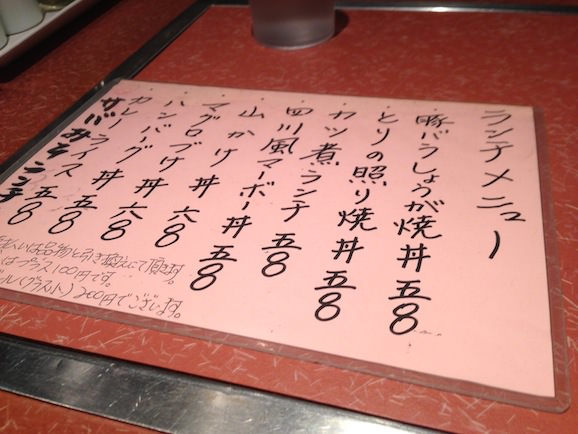 ランチメニュー
・豚バラしょうが焼丼 五8
・とりの照り焼丼 五8
・カツ煮ランチ 五8
・四川風マーボー丼 五8
・山かけ丼 六8
・マグロづけ丼 六8
・ハンバグ丼 五8
・カレーライス 五8
サバみそランチ
払いは品物と引き換えにて頂きます。
はプラス100円です。
ール(グラス) 200円でございます。